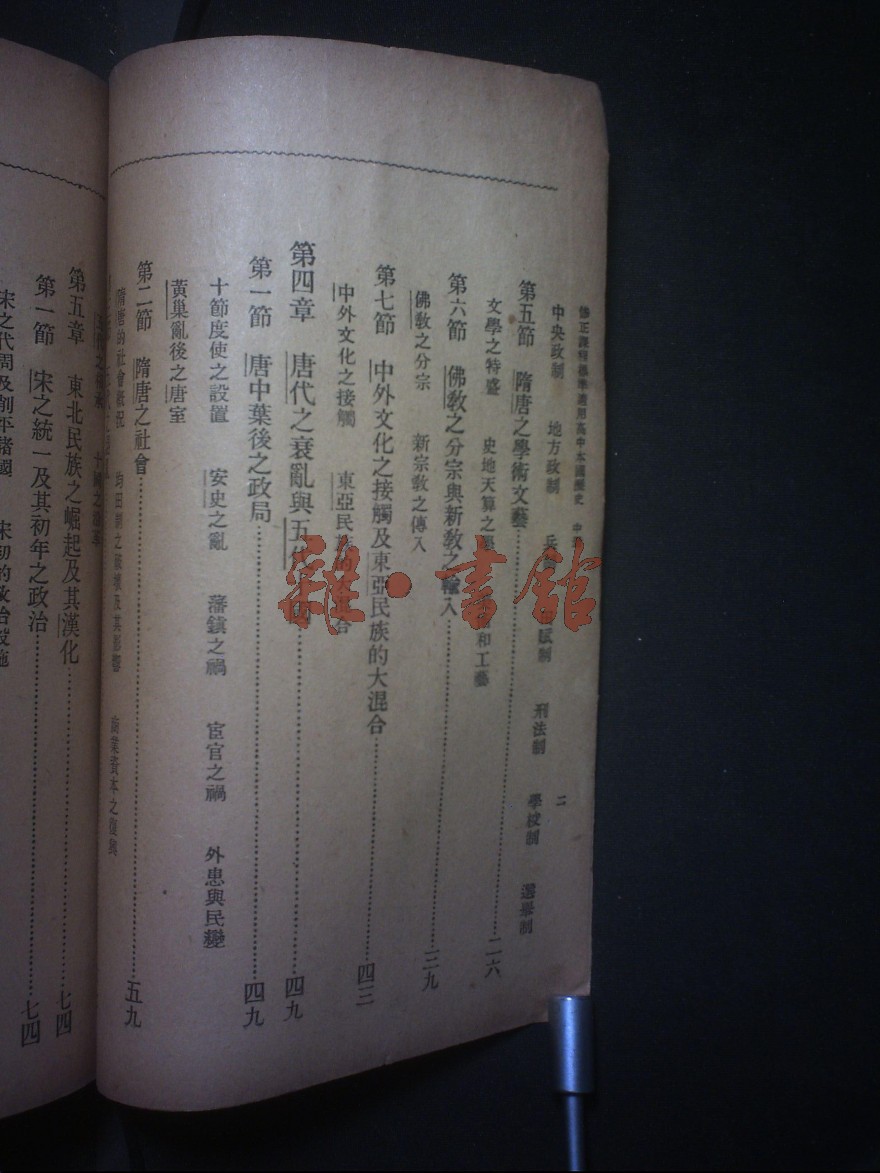 修正課程標準適用高中本國歷史 中 二
中央政制 地方政制 兵 賦制 刑法制 學校制 選舉制
第五節 隋唐之學術文藝 二六
文學之特盛 史地天算之 和工藝
第六節 佛教之分宗與新教之輸入 三九
佛教之分宗 新宗教之傳入
第七節 中外文化之接觸及東亞民族的大混合 四三
中外文化之接觸 東亞民族的大混合
第四章 唐代之衰亂與五代 四九
第一節 唐中葉後之政局 四九
十節度使之設置 安史之亂 藩鎮之禍 宦官之禍 外患與民變
黃巢亂後之唐室
第二節 隋唐之社會 五九
隋唐的社會概況 均田制之破壞及其影響 商業資本之復興
第五章 東北民族之崛起及其漢化 七四
第一節 宋之統一及其初年之政治 七四
宋之代周及削平諸國 宋初的政治設施
雜·書館